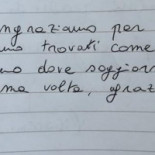 ngraziamo per
mo trovati come
mo dove soggior
ma volta, graz